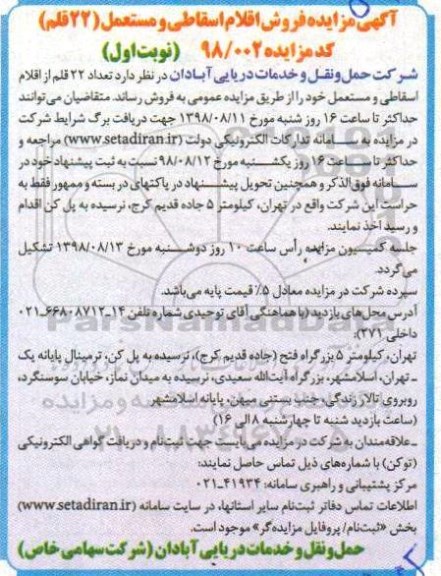 آگهی مزایده فروش اقلام اسقاطی و مستعمل (۲۲ قلم)
کد مزایده ۹۸/۰۰۲ (نوبت اول)
شرکت حمل و نقل و خدمات دریایی آبادان در نظر دارد تعداد ۲۲ قلم از اقلام
اسقاطی و مستعمل خود را از طریق مزایده عمومی به فروش رساند. متقاضیان می‌توانند
حداکثر تا ساعت ۱۶ روز شنبه مورخ ۱۳۹۸/۰۸/۱۱ جهت دریافت برگ شرایط شرکت
در مزایده به سامانه تدارکات الکترونیکی دولت (www.setadiran.ir) مراجعه و
حداکثر تا ساعت ۱۶ روز یکشنبه مورخ ۹۸/۰۸/۱۲ نسبت به ثبت پیشنهاد خود در
سامانه فوق‌الذکر و همچنین تحویل پیشنهاد در پاکتهای در بسته و ممهور فقط به
حراست این شرکت واقع در تهران، کیلومتر ۵ جاده قدیم کرج، نرسیده به پل کن اقدام
و رسید اخذ نمایند.
جلسه کمیسیون مزایده رأس ساعت ۱۰ روز دوشنبه مورخ ۱۳۹۸/۰۸/۱۳ تشکیل
می‌گردد.
سپرده شرکت در مزایده معادل ۵٪ قیمت پایه می‌باشد.
آدرس محل‌های بازدید (با هماهنگی آقای توحیدی شماره تلفن ۱۴-۶۶۸۰۸۷۱۲-۰۲۱
داخلی ۳۷۱):
تهران، کیلومتر ۵ بزرگراه فتح (جاده قدیم کرج)، نرسیده به پل کن، ترمینال پایانه یک
- تهران، اسلامشهر، بزرگراه آیت‌الله سعیدی، نرسیده به میدان نماز، خیابان سوسنگرد،
روبروی تالار زندگی، جنب بستنی میهن، پایانه اسلامشهر
(ساعت بازدید شنبه تا چهارشنبه ۸ الی ۱۶)
- علاقه‌مندان به شرکت در مزایده می‌بایست جهت ثبت‌نام و دریافت گواهی الکترونیکی
(توکن) با شماره‌های ذیل تماس حاصل نمایند:
مرکز پشتیبانی و راهبری سامانه: ۴۱۹۳۴-۰۲۱
اطلاعات تماس دفاتر ثبت‌نام سایر استانها، در سایت سامانه (www.setadiran.ir)
بخش «ثبت‌نام/ پروفایل مزایده‌گر» موجود است.
حمل و نقل و خدمات دریایی آبادان (شرکت سهامی خاص)